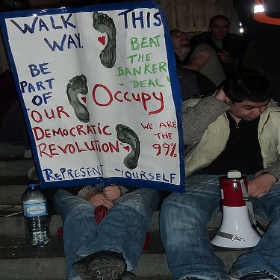 WALK THIS
WAY.
BEAT
THE
BANKER
- DEAL!
BE
PART
OF
OUR OCCUPY
DEMOCRATIC
REVOLUTION
WE ARE
THE
99%
REPRESENT YOURSELF